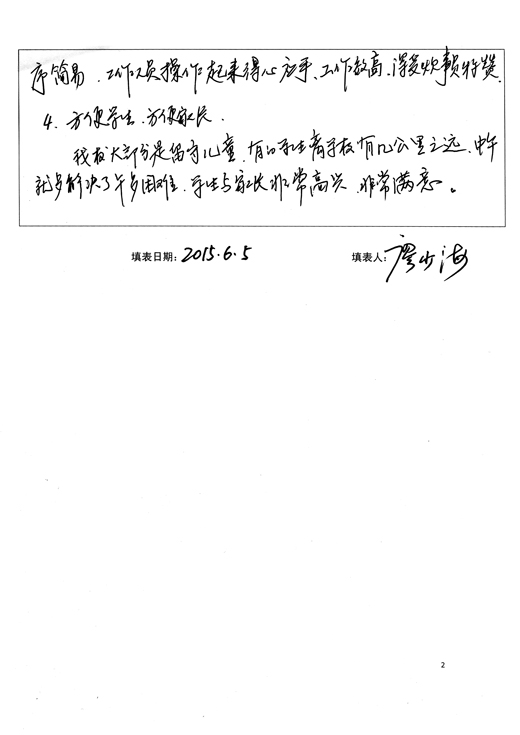 序简易、工作人员操作起来得心应手、工作效高、深受炊事员好赞.
4. 方便学生、方便家长.
我校大部分是留守儿童、有的学生离学校有几公里之远、中午
就步解决了许多困难、学生与家长非常高兴、非常满意。
填表日期：2015.6.5 填表人：廖少海
2